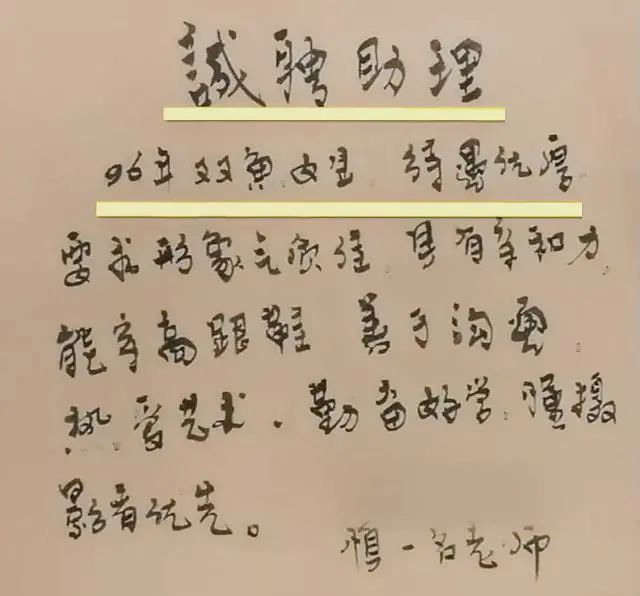 誠聘助理
96年双鱼女生 待遇优厚
要求形象气质佳 具有亲和力
能穿高跟鞋 善于沟通
热爱艺术. 勤奋好学 懂摄
影者优先。
慎一名老师